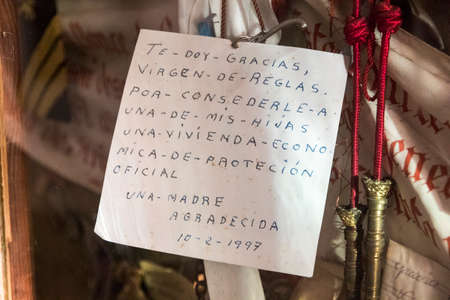 TE-DOY-GRACIAS,
VIRGEN-DE-REGLAS.
POR-CONSEDERLE-A
UNA-DE-MIS-HIJAS
UNA-VIVIENDA-ECONO
MICA-DE-PROTECIÓN
OFICIAL
UNA-MADRE
AGRADECIDA
10-2-1997